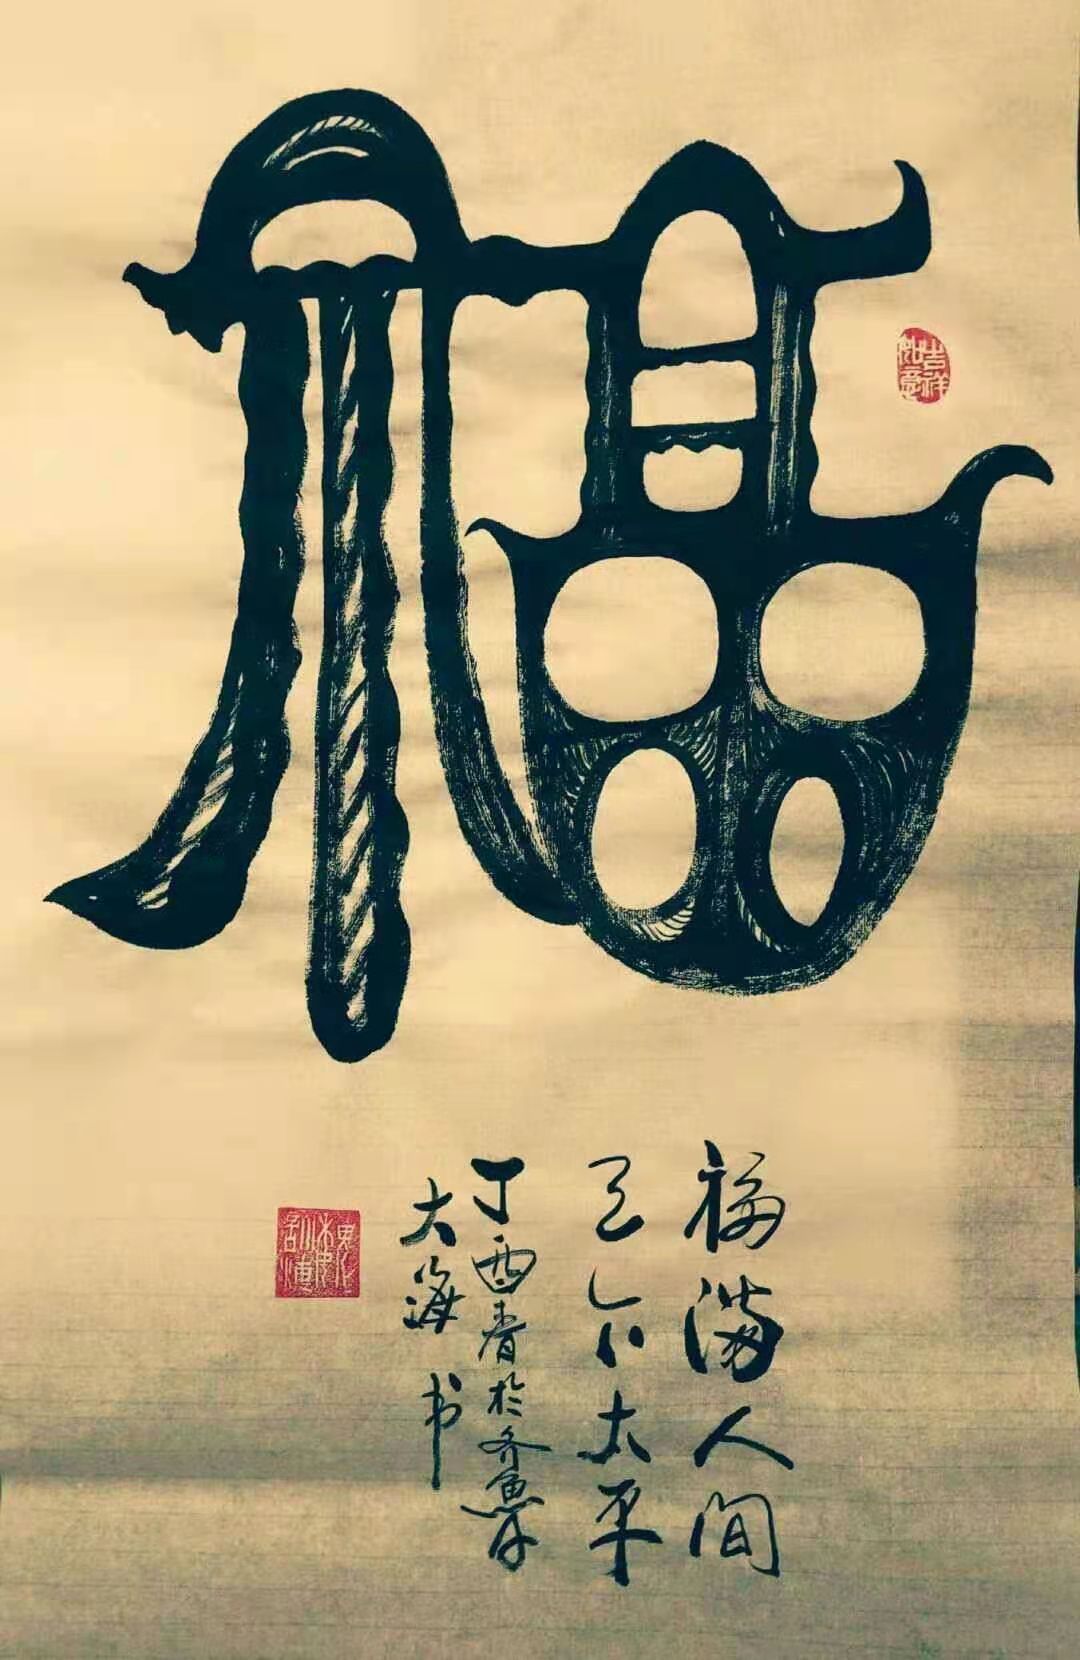 福
吉祥如意
福满人间
天下太平
丁酉春於齐鲁
大海书